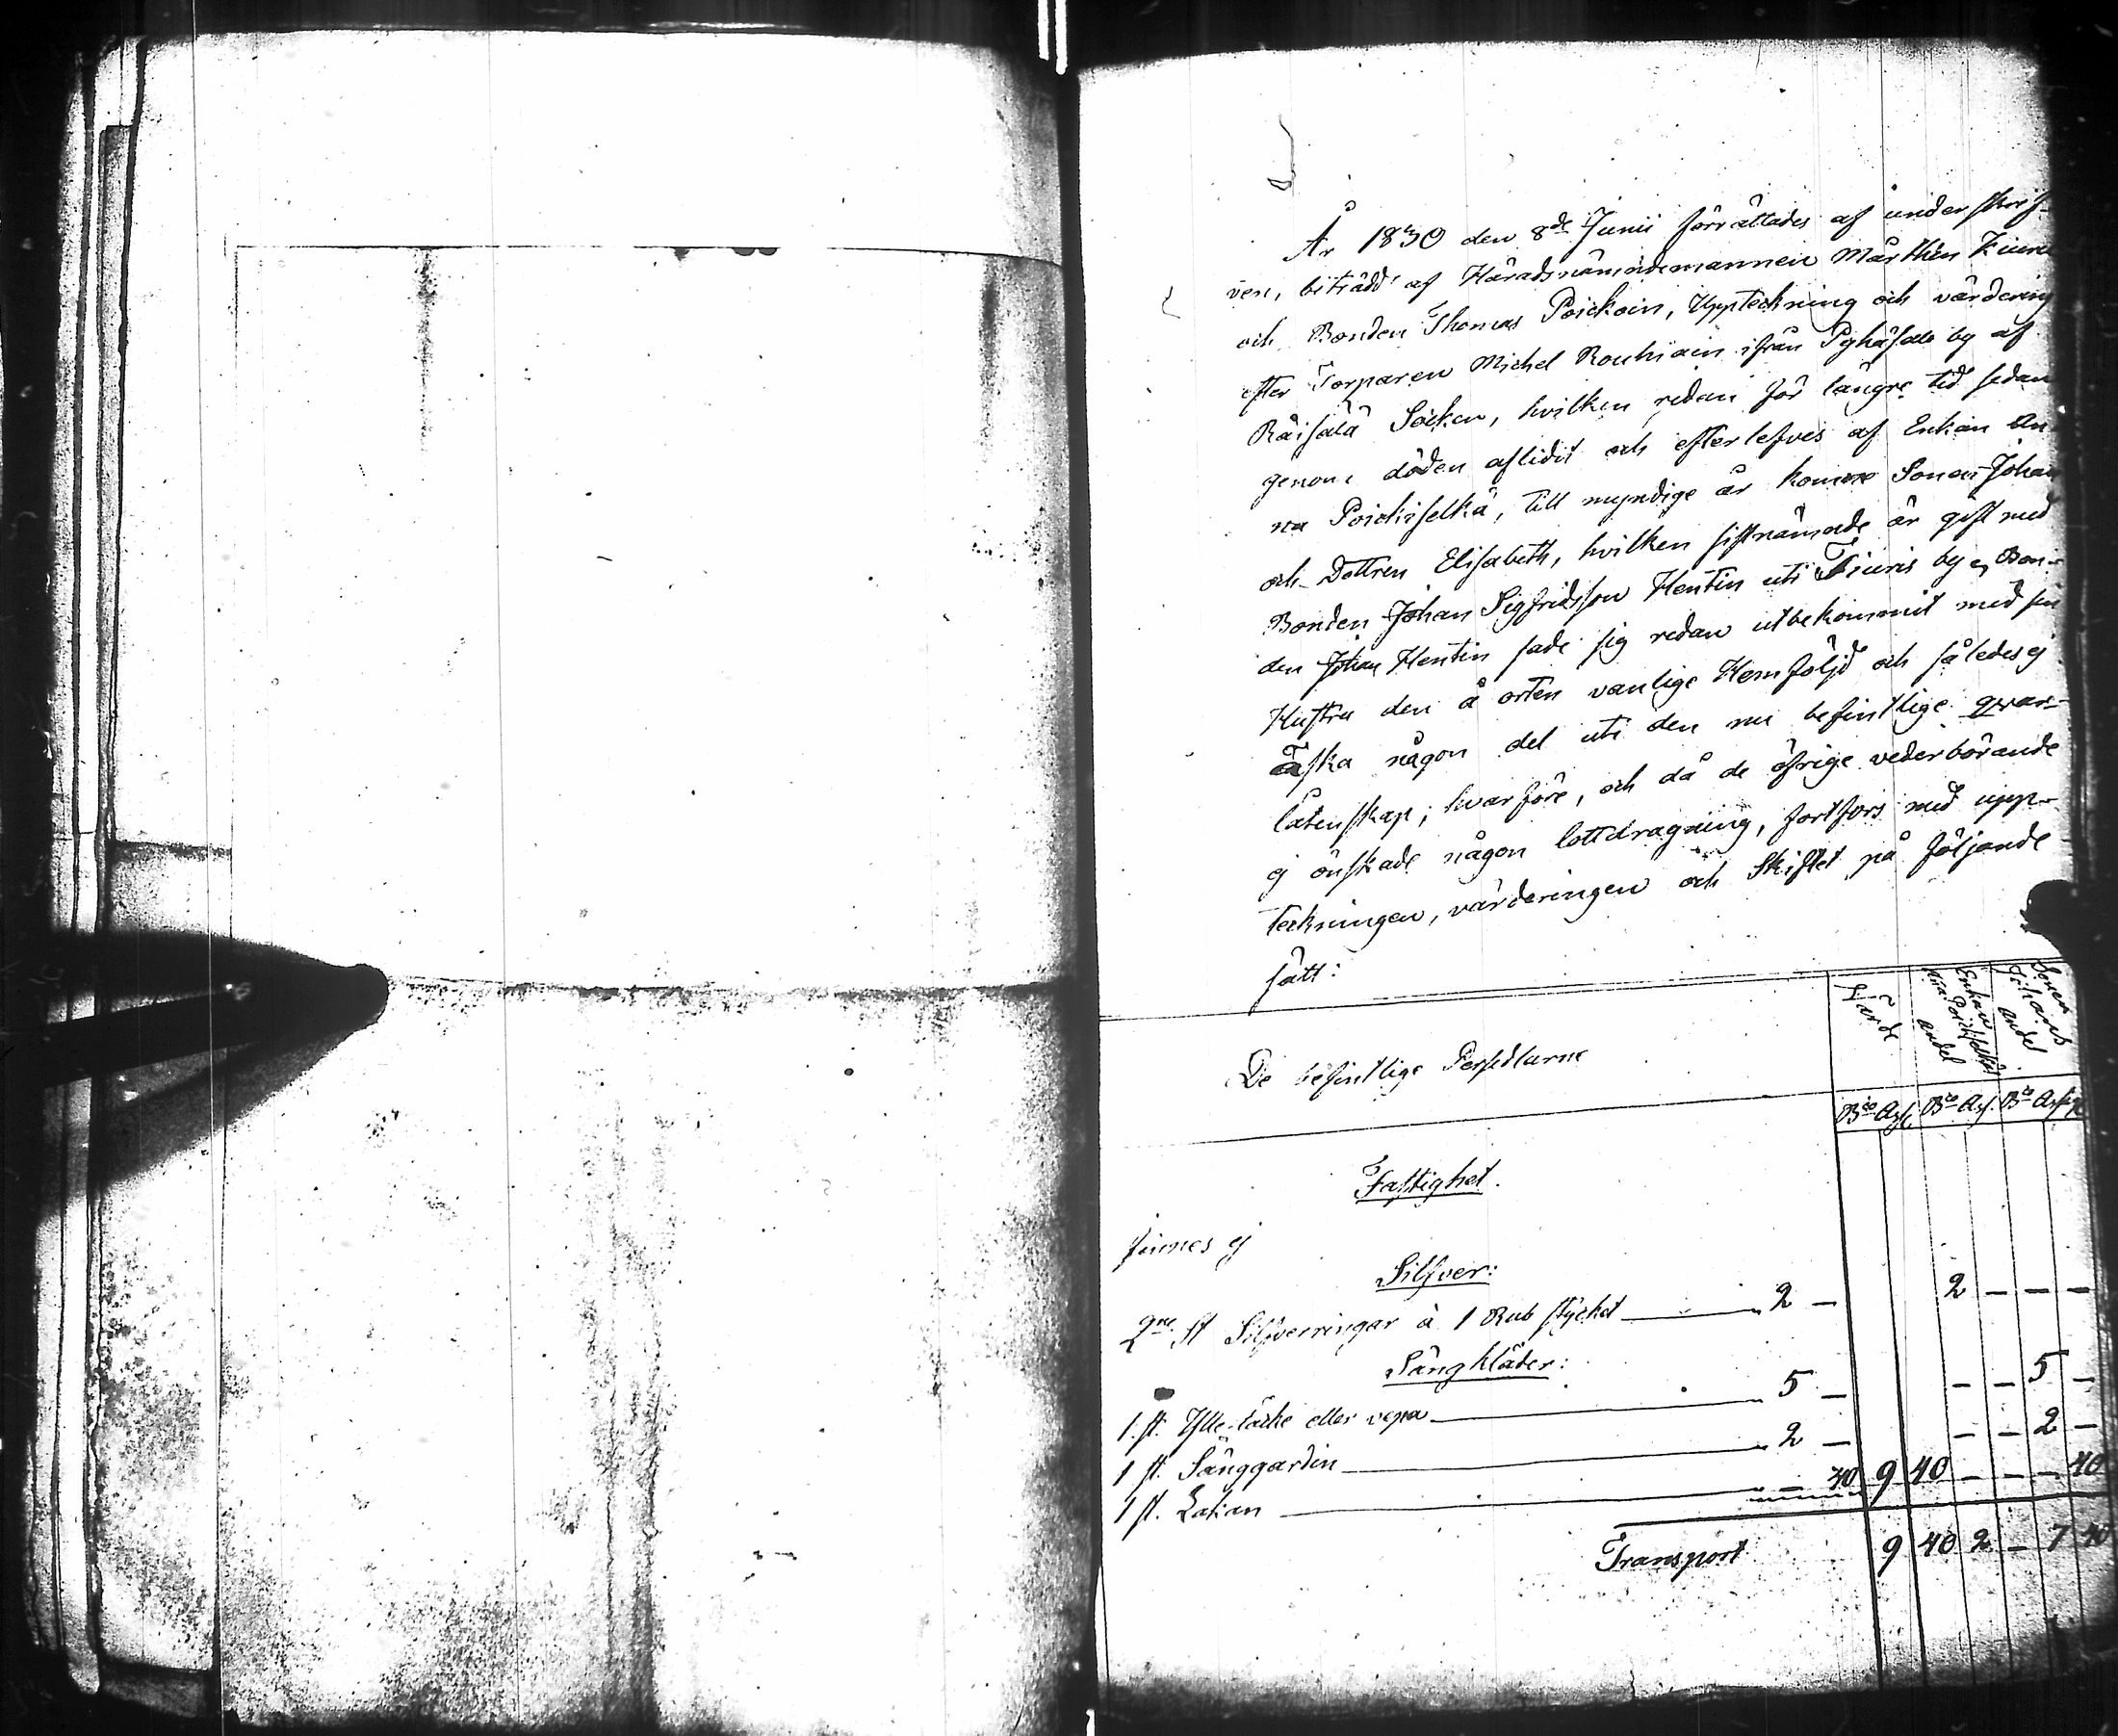 År 1830 den 8de Junii förrättades af underskrif-
ven, biträdd af Häradsnämndemannen Mårthen
och Bonden Thomas Poickoin, Uppteckning och värdering
efter Torparen Michel Rouhiain ifrån Pyhäsalo by af
Räisälä Socken, hvilken redan för längre tid sedan
genom döden aflidit och efterlefves af Enkan An
na Poickiselkä, till myndige år komne Sonen Johan
och Dottren Elisabeth, hvilken sistnämnde är gift med
Bonden Johan Sigfridsson Hentin uti Tiuris by, Bon-
den Johan Hentin sade sig redan utbekommit med sin
Hustru den å orten vanlige Hemföljd och således ej
äska någon del uti den nu befintlige qvar-
låtenskap; hvarföre, och då de öfrige vederbörande
ej önskade någon lottdragning, fortfors med upp-
teckningen, värderingen och Skiftet på följande
sätt:
De befintlige Persedlarne
Värde
Enkan
Poickiselkäs
andel
Sonen
Johans
andel
Bco Assg. Bco Ass. Bco Assig
Fastighet.
finnes ej
Silfver:
2ne st Silfverringar à 1 Rub stycket 2 — 2 — — —
Sängkläder:
1 st. Ylle täcke eller vepa 5 — — — 5 —
1 st. Sänggardin 2 — — — 2 —
1 st. Lakan — 40 9 40 — — — 40
Transport 9 40 2 — 7 40